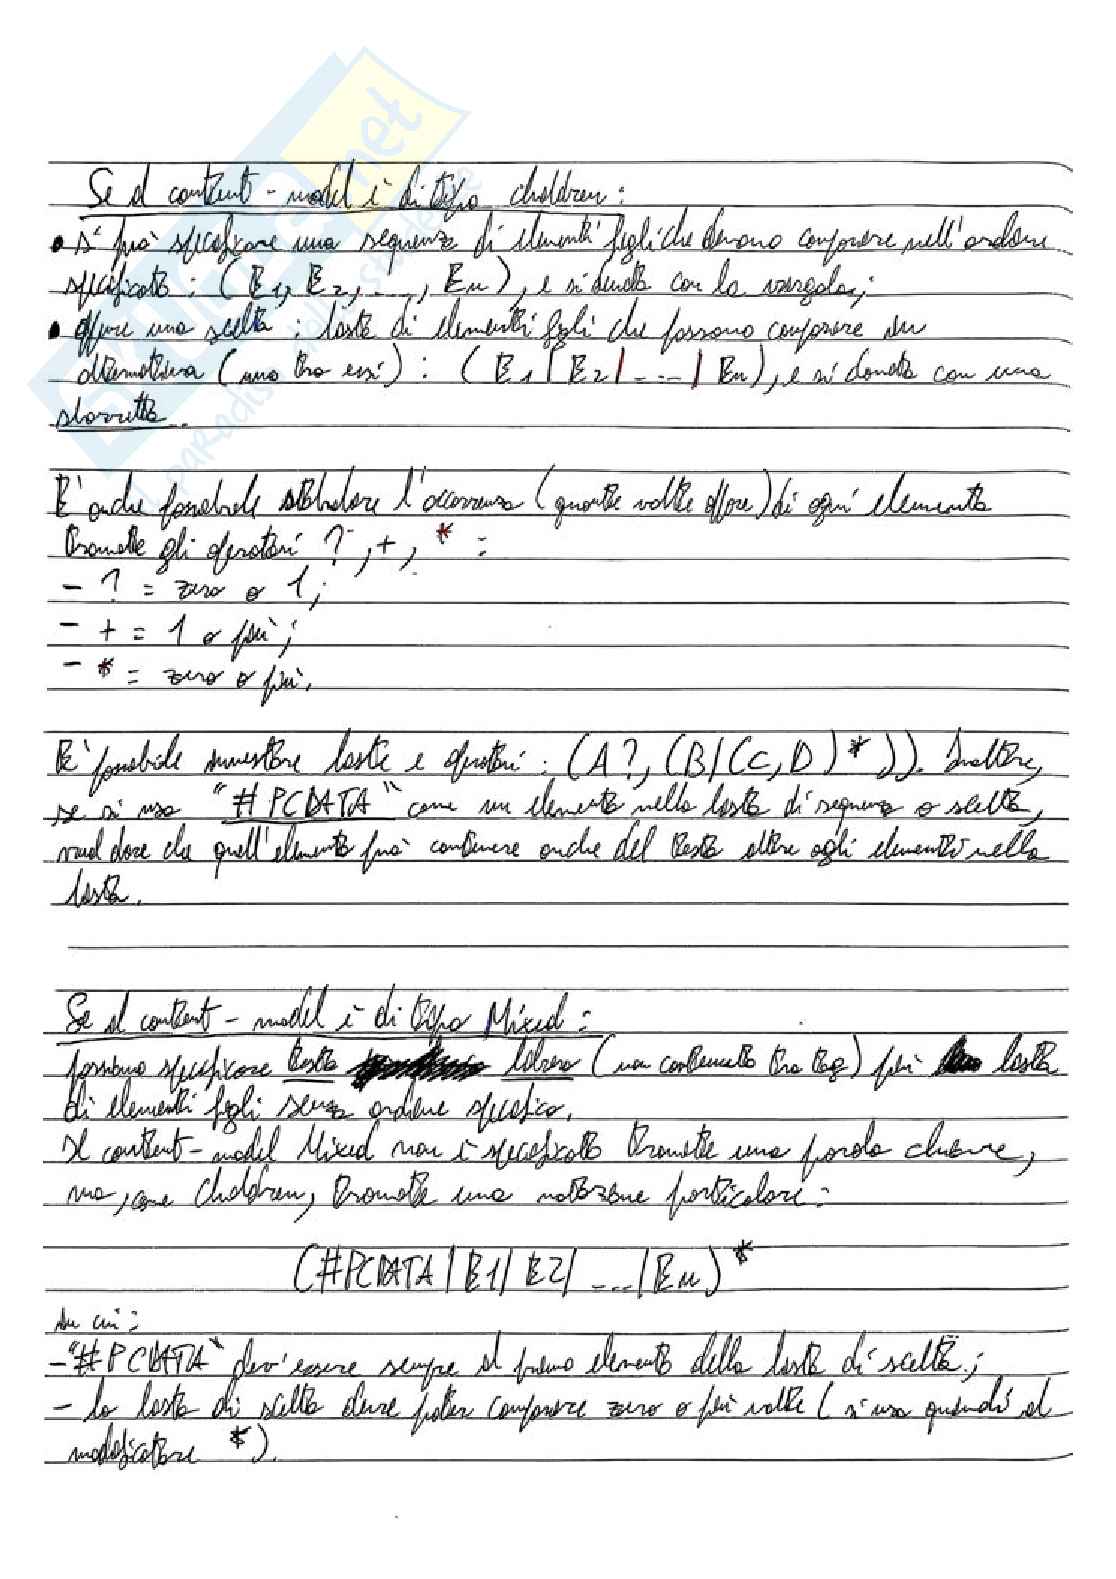 Se il content-model è di tipo children:
• si può specificare una sequenza di elementi figli che devono comparire nell'ordine
specificato: (E1, E2, ..., En), e si denota con la virgola;
• oppure una scelta: lista di elementi figli che possono comparire in
alternativa (uno tra essi): (E1 | E2 | ... | En), e si denota con una
sbarretta.
E' anche possibile stabilire l'occorrenza (quante volte appare) di ogni elemento
tramite gli operatori ?, +, * :
- ? = zero o 1;
- + = 1 o più;
- * = zero o più.
E' possibile innestare liste e operatori: (A?, (B|(C, D)*)). Inoltre,
se si usa "#PCDATA" come un elemento nella lista di sequenza o scelta,
vuol dire che quell'elemento può contenere anche del testo oltre agli elementi nella
lista.
Se il content-model è di tipo Mixed:
possiamo specificare testo libero (non contenuto tra tag) più lista
di elementi figli senza ordine specifico.
Il content-model Mixed non è specificato tramite una parola chiave,
ma, come children, tramite una notazione particolare:
(#PCDATA | E1 | E2 | ... | En)*
in cui:
- "#PCDATA" dev'essere sempre il primo elemento della lista di scelta;
- la lista di scelta deve poter comparire zero o più volte (si usa quindi il
modificatore *).
skuola.net
il paradiso dello studente